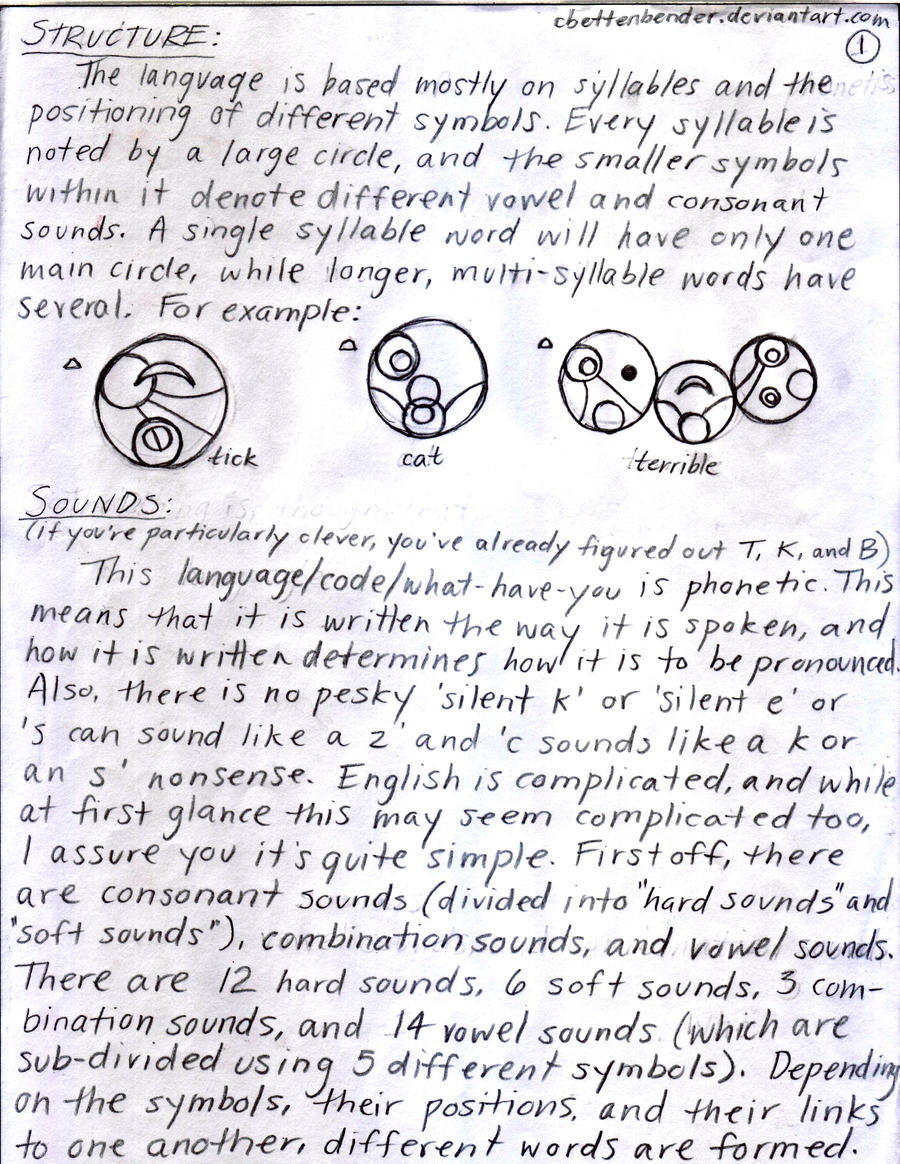 cbettenbender.deviantart.com
1
STRUCTURE:
The language is based mostly on syllables and the
positioning of different symbols. Every syllable is
noted by a large circle, and the smaller symbols
within it denote different vowel and consonant
sounds. A single syllable word will have only one
main circle, while longer, multi-syllable words have
several. For example:
tick cat terrible
SOUNDS:
(if you're particularly clever, you've already figured out T, K, and B)
This language/code/what-have-you is phonetic. This
means that it is written the way it is spoken, and
how it is written determines how it is to be pronounced.
Also, there is no pesky 'silent k' or 'silent e' or
's can sound like a z' and 'c sounds like a k or
an s' nonsense. English is complicated, and while
at first glance this may seem complicated too,
I assure you it's quite simple. First off, there
are consonant sounds (divided into "hard sounds" and
"soft sounds"), combination sounds, and vowel sounds.
There are 12 hard sounds, 6 soft sounds, 3 com-
bination sounds, and 14 vowel sounds (which are
sub-divided using 5 different symbols). Depending
on the symbols, their positions, and their links
to one another, different words are formed.